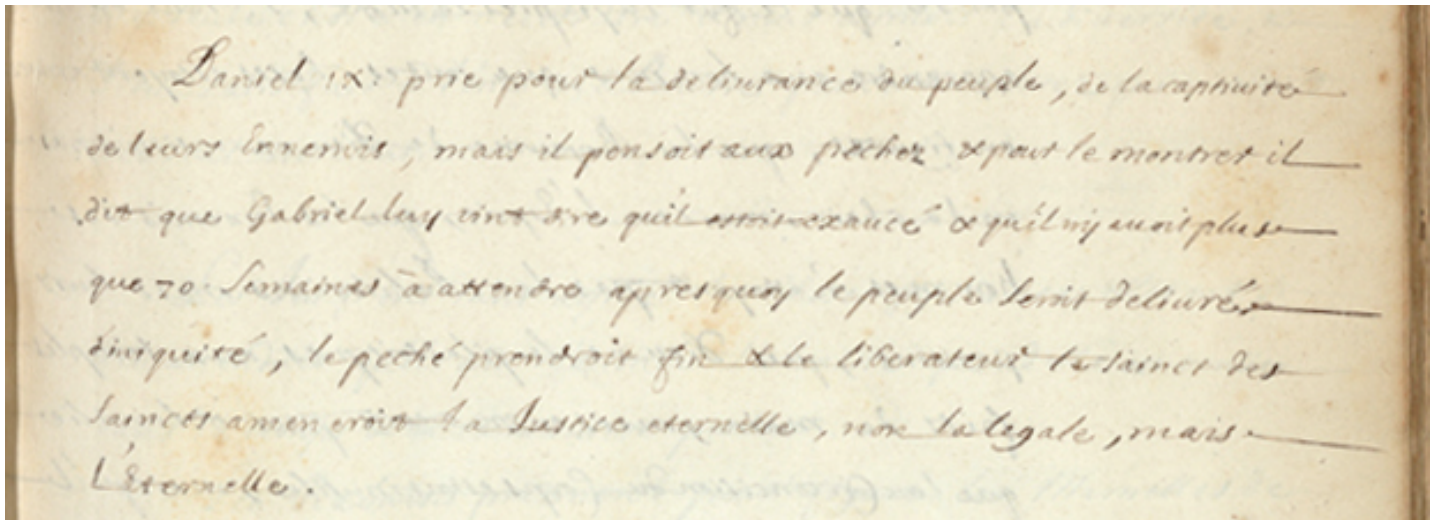 Daniel IX. prie pour la deliurance du peuple, de la captiuité
de leurs Ennemis, mais il pensoit aux pechez & pour le montrer il
dit que Gabriel luy vint dire qu'il estoit exaucé & qu'il n'y auoit plus
que 70 Semaines à attendre apres quoy le peuple seroit deliuré
d'iniquité, le peché prendroit fin & le liberateur le Sainct des
Saincts ameneroit la Justice eternelle, non la legale, mais
L'Eternelle.